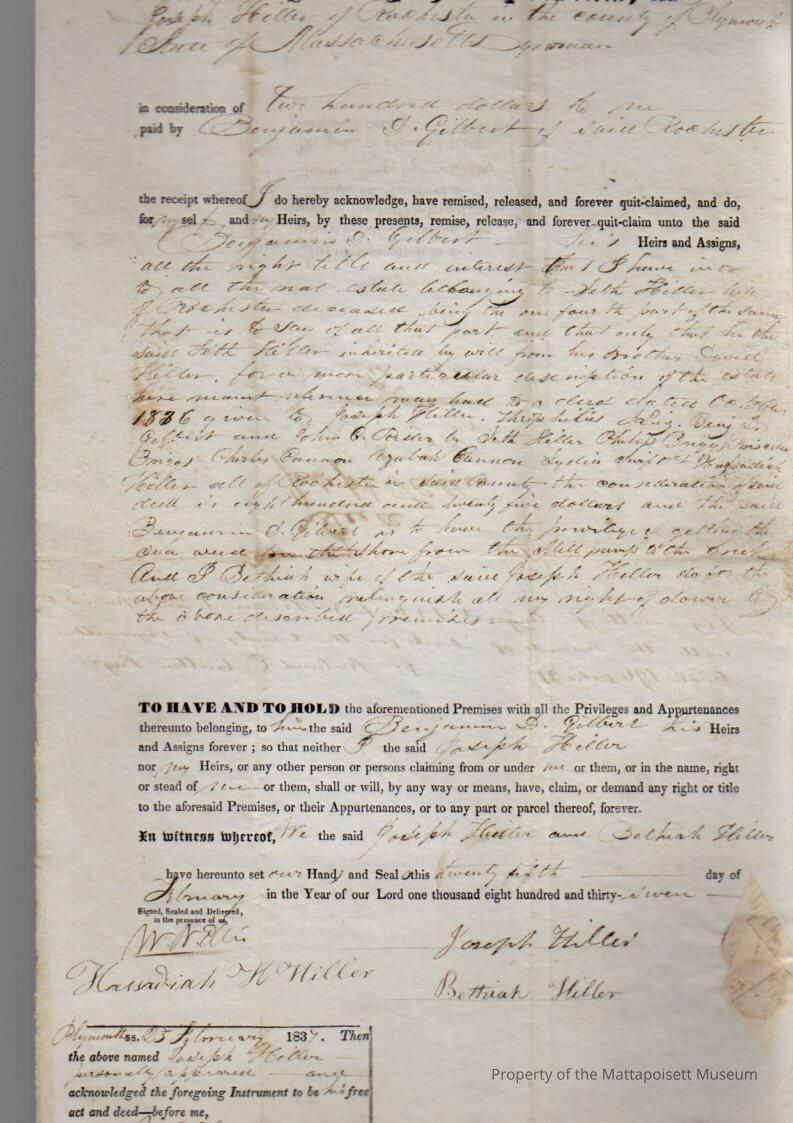 Joseph Hiller of Rochester in the county of Plymouth
State of Massachusetts yeoman
in consideration of two hundred dollars to me
paid by Benjamin D. Gilbert of said Rochester
the receipt whereof I do hereby acknowledge, have remised, released, and forever quit-claimed, and do,
for myself and my Heirs, by these presents, remise, release, and forever quit-claim unto the said
Benjamin D. Gilbert his Heirs and Assigns,
all the right title and interest that I have in or
to all the real estate belonging to Seth Hiller late
of Rochester deceased, being the one fourth part of the same
that is to say of all that part and that only that he the
said Seth Hiller inherited by will from his Brother David
Hiller, for a more particular description of the estate
here meant reference may had to a deed dated October
1836 given to Joseph Hiller, Theophilus King, Benj D.
Gilbert and John C. by Seth Hiller Philip Briggs
Briggs Charles Cannon Azubah Cannon Lydia Swift & Hassadiah
Hiller all of Rochester in said County the consideration of said
deed is eight hundred and twenty five dollars and the said
Benjamin D. Gilbert is to have the privilege of getting the
sea weed on the shore from the Mill to the creek
And I Bethiah wife of the said Joseph Hiller do for the
above consideration relinquish all my right of dower to
the above described premises
TO HAVE AND TO HOLD the aforementioned Premises with all the Privileges and Appurtenances
thereunto belonging, to him the said Benjamin D. Gilbert his Heirs
and Assigns forever ; so that neither I the said Joseph Hiller
nor my Heirs, or any other person or persons claiming from or under me or them, or in the name, right
or stead of me or them, shall or will, by any way or means, have, claim, or demand any right or title
to the aforesaid Premises, or their Appurtenances, or to any part or parcel thereof, forever.
In witness whereof, We the said Joseph Hiller and Bethiah Hiller
have hereunto set our Hands and Seals this twenty fifth day of
February in the Year of our Lord one thousand eight hundred and thirty-seven
Signed, Sealed and Delivered,
in the presence of us,
W. N. Ellis
Joseph Hiller
Hassadiah H Hiller
Bethiah Hiller
Plymouth ss. 25 February 1837. Then
the above named Joseph Hiller
personally appeared and
acknowledged the foregoing Instrument to be his free
act and deed—before me,
Property of the Mattapoisett Museum